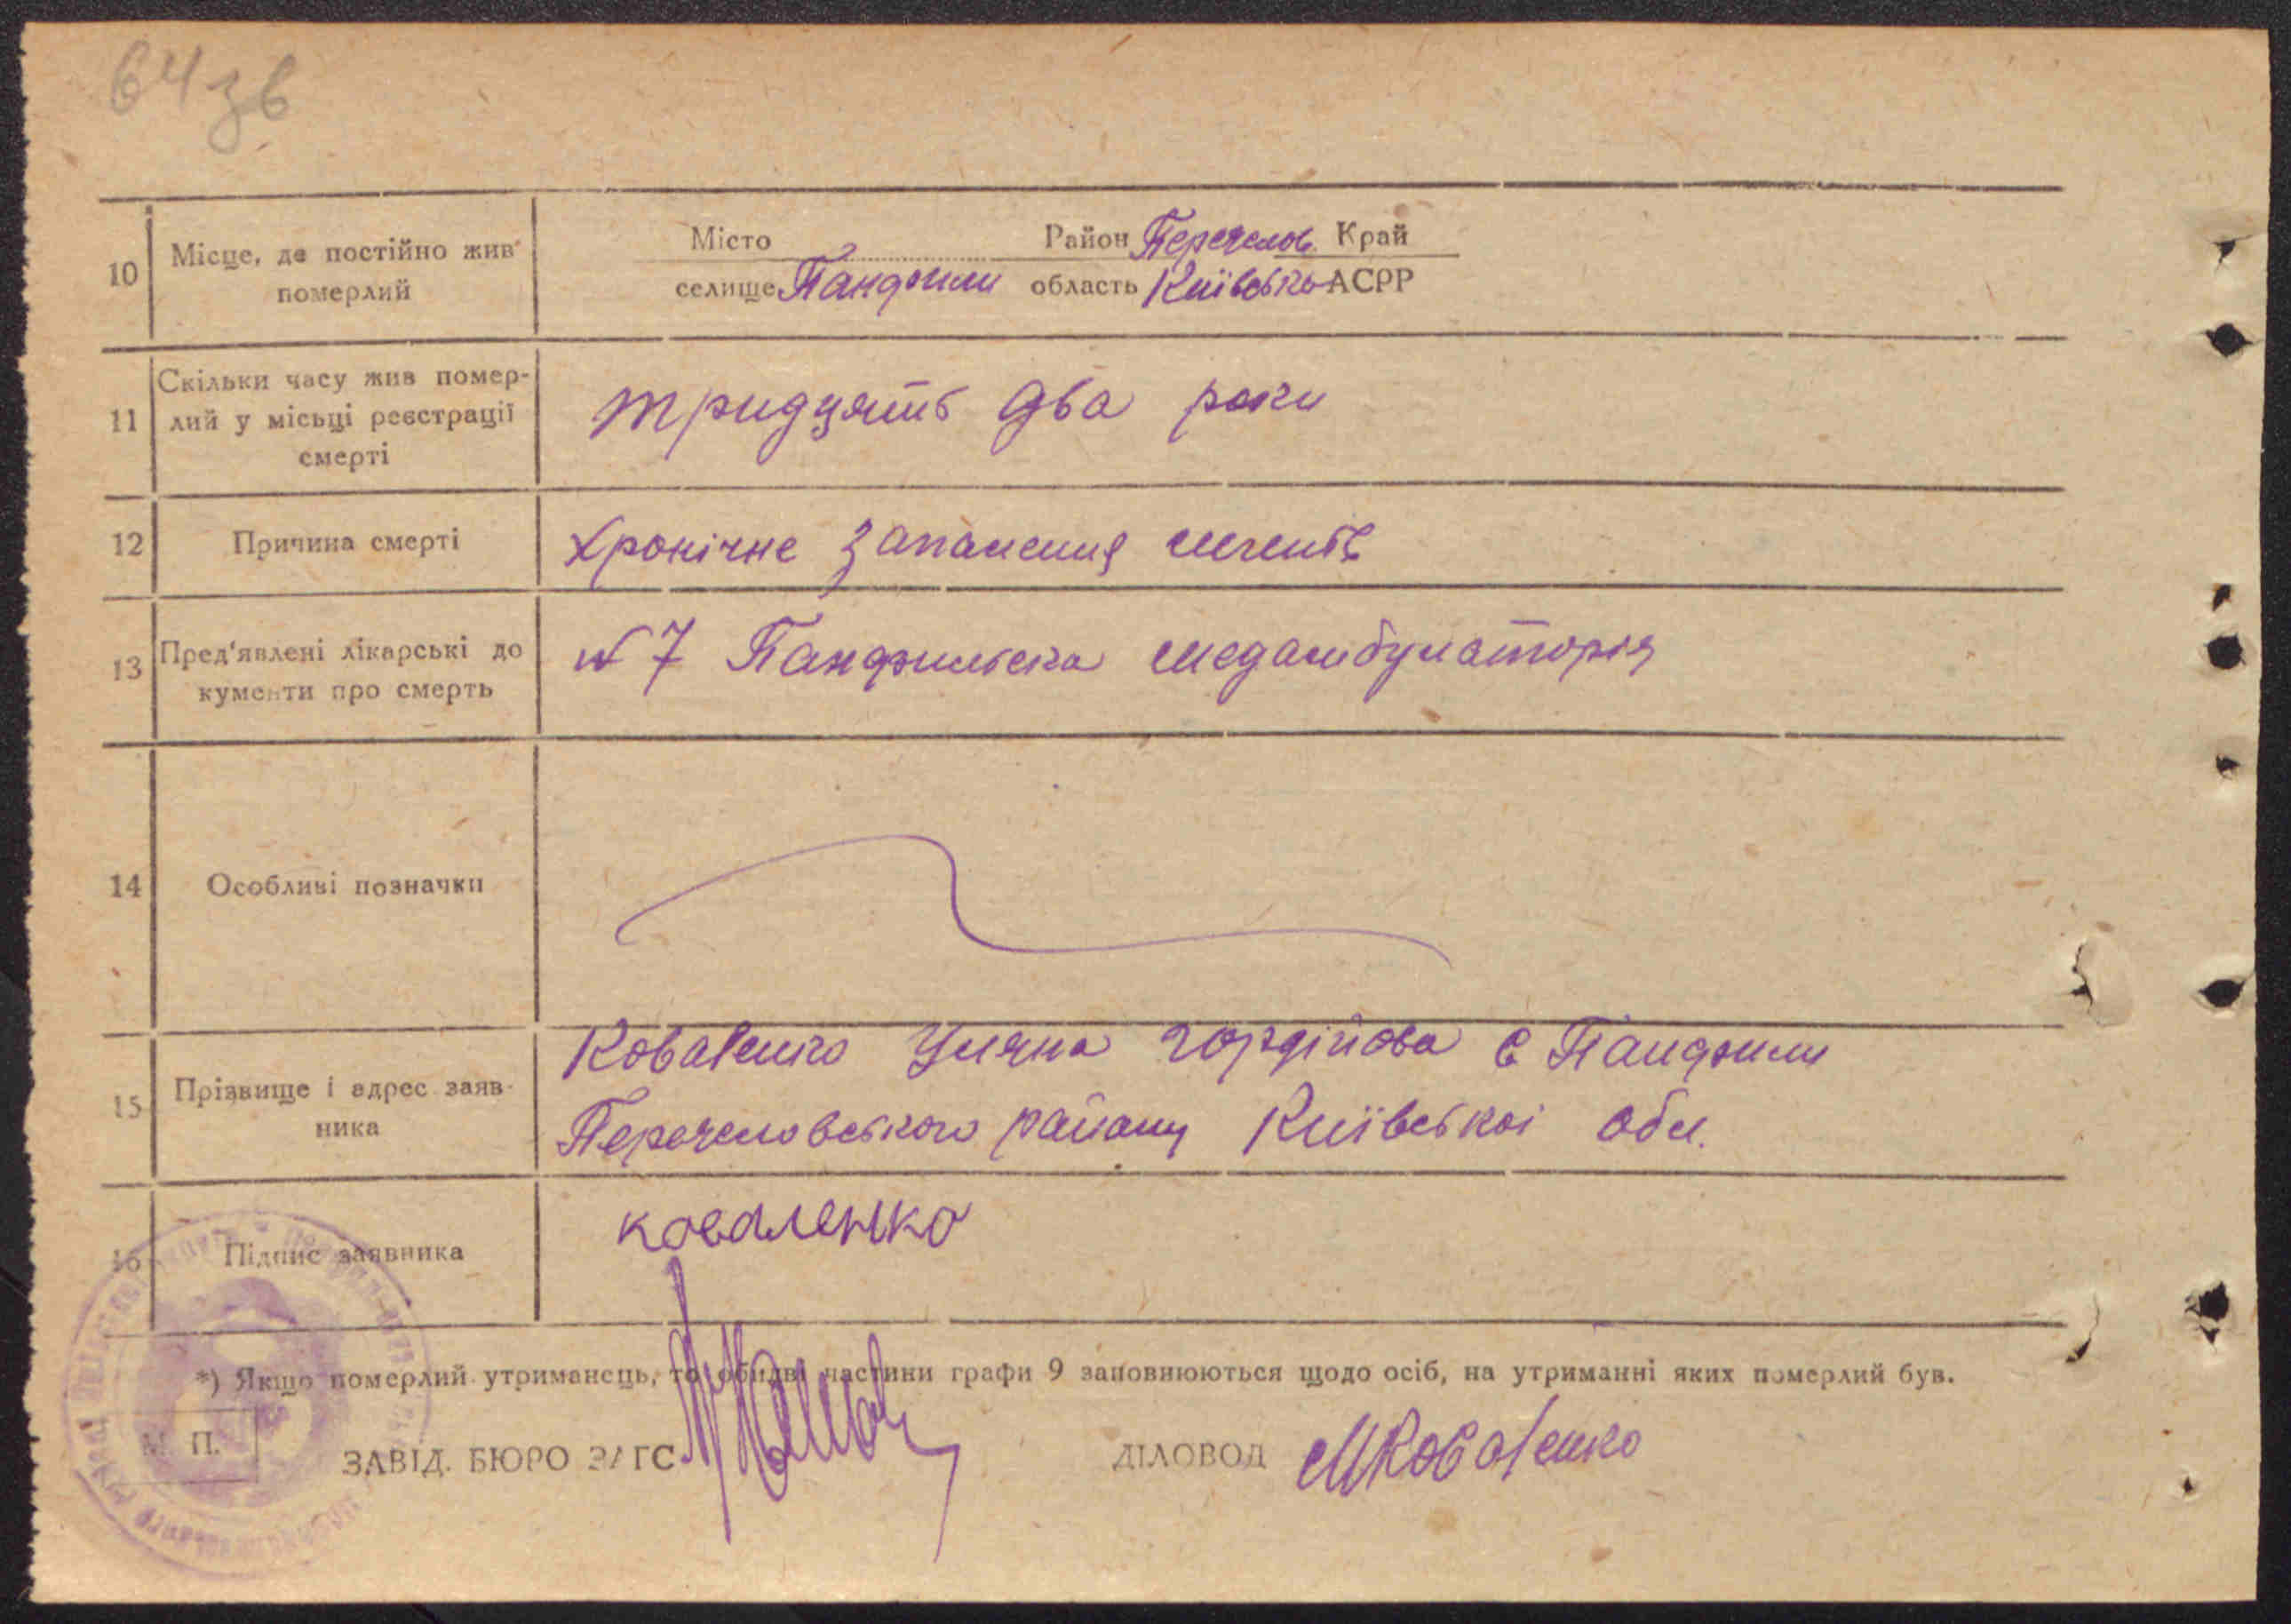 64зв
Місто Район Переяслов. Край
10 Місце, де постійно жив померлий
селище Панфили область Київсько АСРР
11 Скільки часу жив помер-
лий у місьці реєстрації
смерті
тридцять два роки
12 Причина смерті
Хронічне запалення легень
13 Пред'явлені лікарські до
кументи про смерть
№ 7 Панфильска медамбулаторія
14 Особливі позначки
15 Прізвище і адрес заяв-
ника
Коваленко Уляна Гордійова с Панфили
Переясловського району Київської обл.
16 Підпис заявника
коваленко
*) Якщо померлий утриманець, то обидві частини графи 9 заповнюються щодо осіб, на утриманні яких померлий був.
М. П.
ЗАВІД. БЮРО ЗАГС
ДІЛОВОД МКоваленко